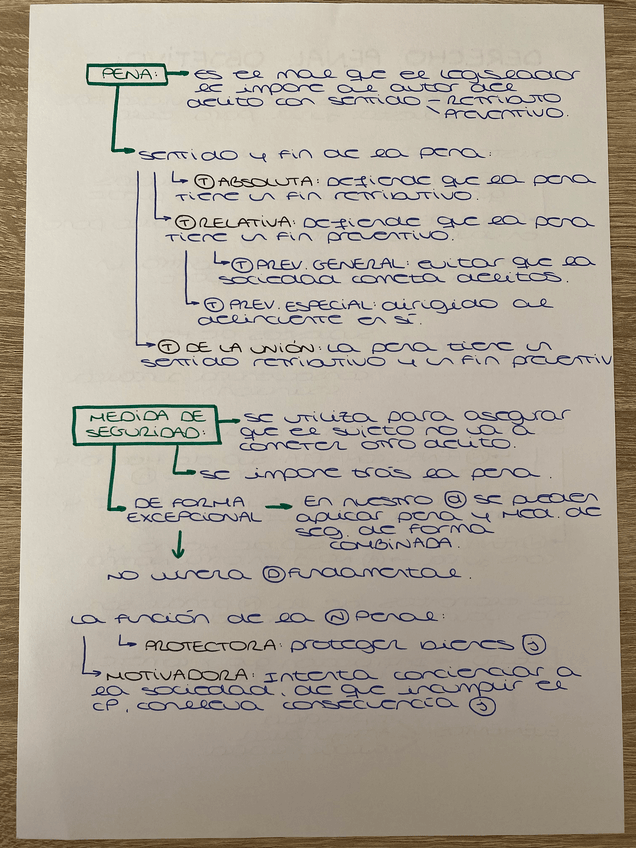 PENA: → ES EL MAL QUE EL LEGISLADOR
LE IMPONE AL AUTOR DEL
DELITO CON SENTIDO - RETRIBUTO
PREVENTIVO.
SENTIDO Y FIN DE LA PENA:
Ⓣ ABSOLUTA: DEFIENDE QUE LA PENA
TIENE UN FIN RETRIBUTIVO.
Ⓣ RELATIVA: DEFIENDE QUE LA PENA
TIENE UN FIN PREVENTIVO.
Ⓣ PREV. GENERAL: EVITAR QUE LA
SOCIEDAD COMETA DELITOS.
Ⓣ PREV. ESPECIAL: DIRIGIDO AL
DELINCUENTE EN SÍ.
Ⓣ DE LA UNIÓN: LA PENA TIENE UN
SENTIDO RETRIBUTIVO Y UN FIN PREVENTIV
MEDIDA DE
SEGURIDAD:
SE UTILIZA PARA ASEGURAR
QUE EL SUJETO NO VA A
COMETER OTRO DELITO.
SE IMPONE TRÁS LA PENA.
DE FORMA
EXCEPCIONAL
EN NUESTRO ⓓ SE PUEDEN
APLICAR PENA Y MED. DE
SEG. DE FORMA
COMBINADA.
NO VULNERA Ⓓ FUNDAMENTAL.
LA FUNCIÓN DE LA Ⓝ PENAL:
PROTECTORA: PROTEGER BIENES Ⓙ
MOTIVADORA: INTENTA CONCIENCIAR A
LA SOCIEDAD, DE QUE INCUMPLIR EL
CP, CONLLEVA CONSECUENCIA Ⓙ